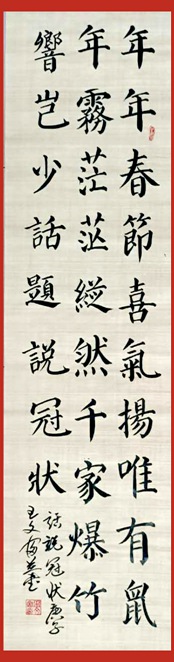 年年春節喜氣揚唯有鼠
年霧茫茫縱然千家爆竹
響豈少話題說冠狀
話說冠狀庚子